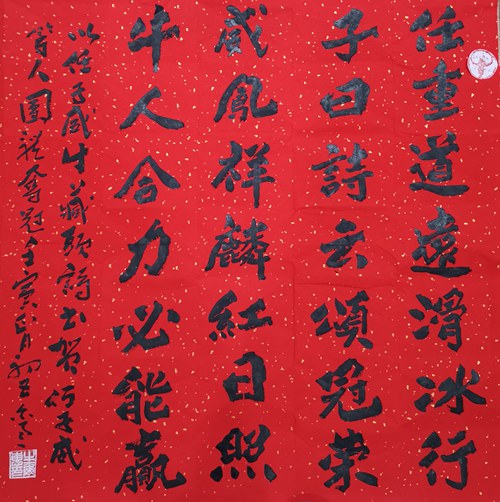 任重道遠滑冰行
子曰詩云頌冠榮
威鳳祥麟紅日照
牛人合力必能贏
以任子威牛藏頭詩书賀任子威
等人團體奪冠壬寅正月初五